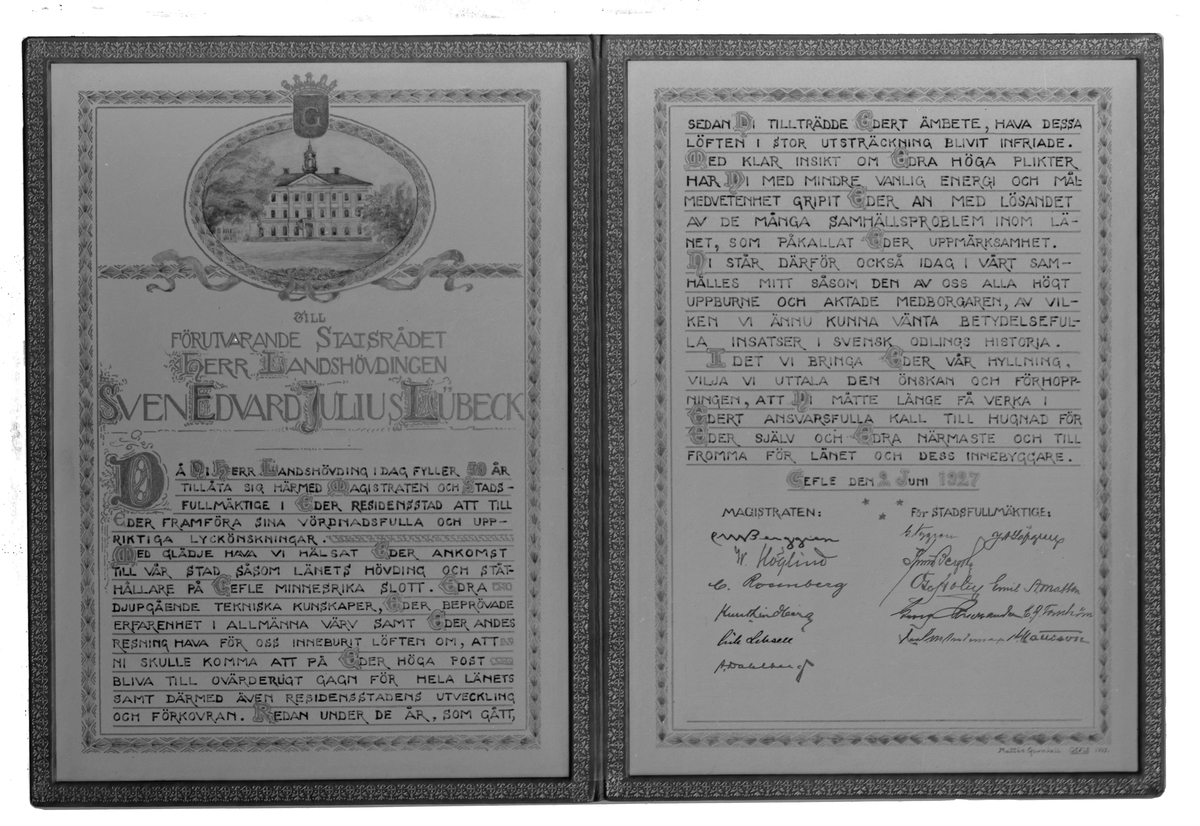 G
TILL
FÖRUTVARANDE STATSRÅDET
HERR LANDSHÖVDINGEN
SVEN EDVARD JULIUS LÜBECK
DÅ NI HERR LANDSHÖVDING IDAG FYLLER 50 ÅR
TILLÅTA SIG HÄRMED MAGISTRATEN OCH STADS-
FULLMÄKTIGE I EDER RESIDENSSTAD ATT TILL
EDER FRAMFÖRA SINA VÖRDNADSFULLA OCH UPP-
RIKTIGA LYCKÖNSKNINGAR.
MED GLÄDJE HAVA VI HÄLSAT EDER ANKOMST
TILL VÅR STAD SÅSOM LÄNETS HÖVDING OCH STÅT-
HÅLLARE PÅ GEFLE MINNESRIKA SLOTT. EDRA
DJUPGÅENDE TEKNISKA KUNSKAPER, EDER BEPRÖVADE
ERFARENHET I ALLMÄNNA VÄRV SAMT EDER ANDES
RESNING HAVA FÖR OSS INNEBURIT LÖFTEN OM, ATT
NI SKULLE KOMMA ATT PÅ EDER HÖGA POST
BLIVA TILL OVÄRDERLIGT GAGN FÖR HELA LÄNETS
SAMT DÄRMED ÄVEN RESIDENSSTADENS UTVECKLING
OCH FÖRKOVRAN. REDAN UNDER DE ÅR, SOM GÅTT,
SEDAN NI TILLTRÄDDE EDERT ÄMBETE, HAVA DESSA
LÖFTEN I STOR UTSTRÄCKNING BLIVIT INFRIADE.
MED KLAR INSIKT OM EDRA HÖGA PLIKTER
HAR NI MED MINDRE VANLIG ENERGI OCH MÅL-
MEDVETENHET GRIPIT EDER AN MED LÖSANDET
AV DE MÅNGA SAMHÄLLSPROBLEM INOM LÄ-
NET, SOM PÅKALLAT EDER UPPMÄRKSAMHET.
NI STÅR DÄRFÖR OCKSÅ IDAG I VÅRT SAM-
HÄLLES MITT SÅSOM DEN AV OSS ALLA HÖGT
UPPBURNE OCH AKTADE MEDBORGAREN, AV VIL-
KEN VI ÄNNU KUNNA VÄNTA BETYDELSEFUL-
LA INSATSER I SVENSK ODLINGS HISTORIA.
I DET VI BRINGA EDER VÅR HYLLNING,
VILJA VI UTTALA DEN ÖNSKAN OCH FÖRHOPP-
NINGEN, ATT NI MÅTTE LÄNGE FÅ VERKA I
EDERT ANSVARSFULLA KALL TILL HUGNAD FÖR
EDER SJÄLV OCH EDRA NÄRMASTE OCH TILL
FROMMA FÖR LÄNET OCH DESS INNEBYGGARE.
GEFLE DEN 2 JUNI 1927
MAGISTRATEN: FÖR STADSFULLMÄKTIGE:
W. Höglind
C. Rosenberg
Knut Lindberg
Emil
A. Dahlberg